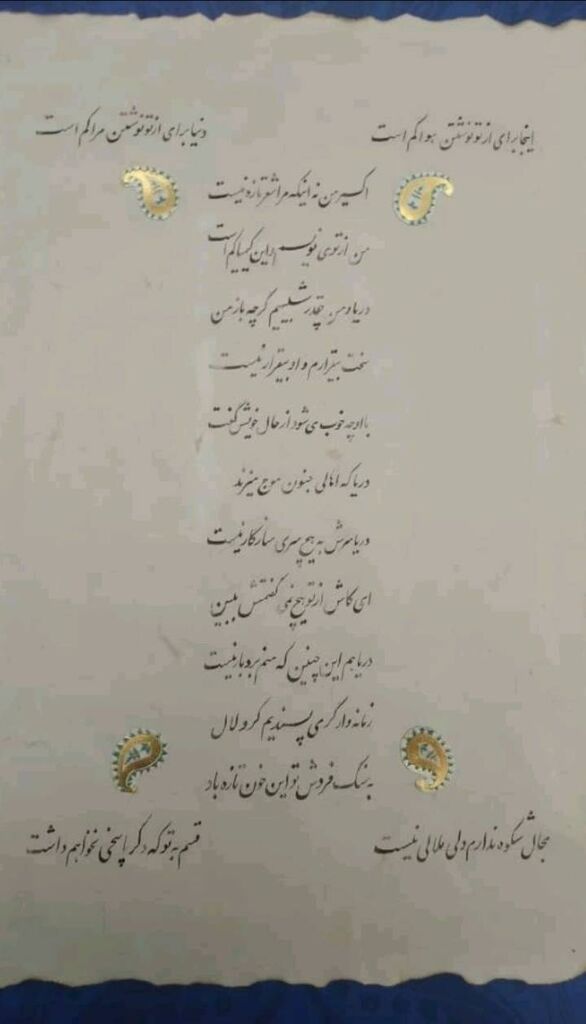 اینجا برای از تو نوشتن هوا کم است
دنیا برای از تو نوشتن مرا کم است
اکسیر من نه اینکه مرا شعر تازه نیست
من از تو می نویسم و این کیمیا کم است
دریا و من چقدر شبیهیم گرچه باز من
سخت بیقرارم و او بیقرار نیست
با او چه خوب می شود از حال خویش گفت
دریا که از اهالی جنون موج میزند
دریا سرش به هیچ سری سازگار نیست
ای کاش از تو هیچ نمی گفتمش ببین
دریا هم این چنین که منم بردبار نیست
زمانه وار اگر می پسندیم کر و لال
به سنگ فرش تو این خون تازه باد
مجال شکوه ندارم ولی ملالی نیست
قسم به تو که دگر پاسخی نخواهم داشت